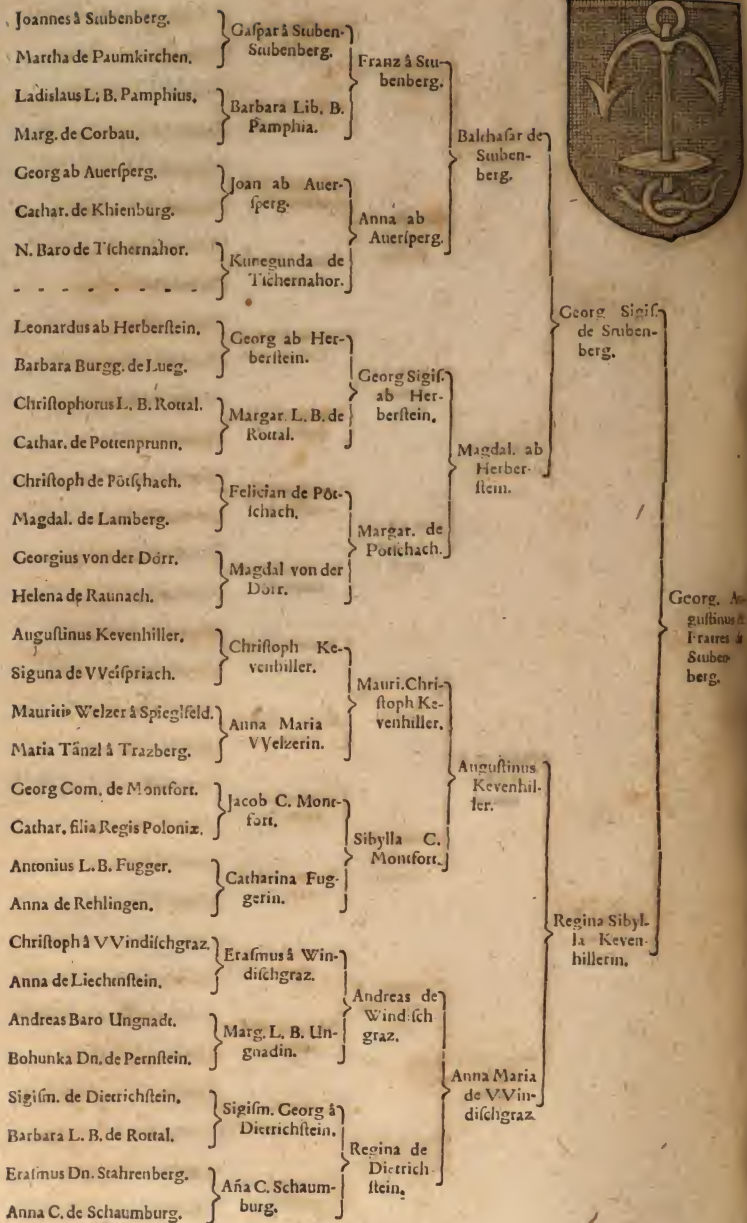 Joannes à Stubenberg.
Martha de Paumkirchen.
Ladislaus L. B. Pamphius.
Marg. de Corbau.
Georg ab Auerſperg.
Cathar. de Khienburg.
N. Baro de Tſchernahor.
- - - - - - - -
Leonardus ab Herberſtein.
Barbara Burgg. de Lueg.
Chriſtophorus L. B. Rottal.
Cathar. de Pottenprunn.
Chriſtoph de Pötſchach.
Magdal. de Lamberg.
Georgius von der Dörr.
Helena de Raunach.
Auguſtinus Kevenhiller.
Siguna de VVeiſpriach.
Mauritiꝰ Welzer à Spieglfeld.
Maria Tänzl à Trazberg.
Georg Com. de Montfort.
Cathar. filia Regis Poloniæ.
Antonius L. B. Fugger.
Anna de Rehlingen.
Chriſtoph à VVindiſchgraz.
Anna de Liechtnſtein.
Andreas Baro Ungnadt.
Bohunka Dn. de Pernſtein.
Sigiſm. de Dietrichſtein.
Barbara L. B. de Rottal.
Eraſmus Dn. Stahrenberg.
Anna C. de Schaumburg.
Gaſpar à Stuben-
Stubenberg.
Barbara Lib. B.
Pamphia.
Joan ab Auer-
ſperg.
Kunegunda de
Tſchernahor.
Georg ab Her-
berſtein.
Margar. L. B. de
Rottal.
Felician de Pöt-
ſchach.
Magdal von der
Dörr.
Chriſtoph Ke-
venhiller.
Anna Maria
VVelzerin.
Jacob C. Mont-
fort.
Catharina Fug-
gerin.
Eraſmus à Win-
diſchgraz.
Marg. L. B. Un-
gnadin.
Sigiſm. Georg à
Dietrichſtein.
Aña C. Schaum-
burg.
Franz à Stu-
benberg.
Anna ab
Auerſperg.
Georg Sigiſ.
ab Her-
berſtein.
Margar. de
Pötſchach.
Mauri. Chri-
ſtoph Ke-
venhiller.
Sibylla C.
Montfort.
Andreas de
Windiſch
graz.
Regina de
Dietrich
ſtein.
Balthaſar de
Stuben-
berg.
Magdal. ab
Herber-
ſtein.
Auguſtinus
Kevenhil-
ler.
Anna Maria
de VVin-
diſchgraz
Georg Sigiſ.
de Stuben-
berg.
Regina Sibyl-
la Keven-
hillerin.
Georg. Au-
guſtinus &
Fratres à
Stuben-
berg.